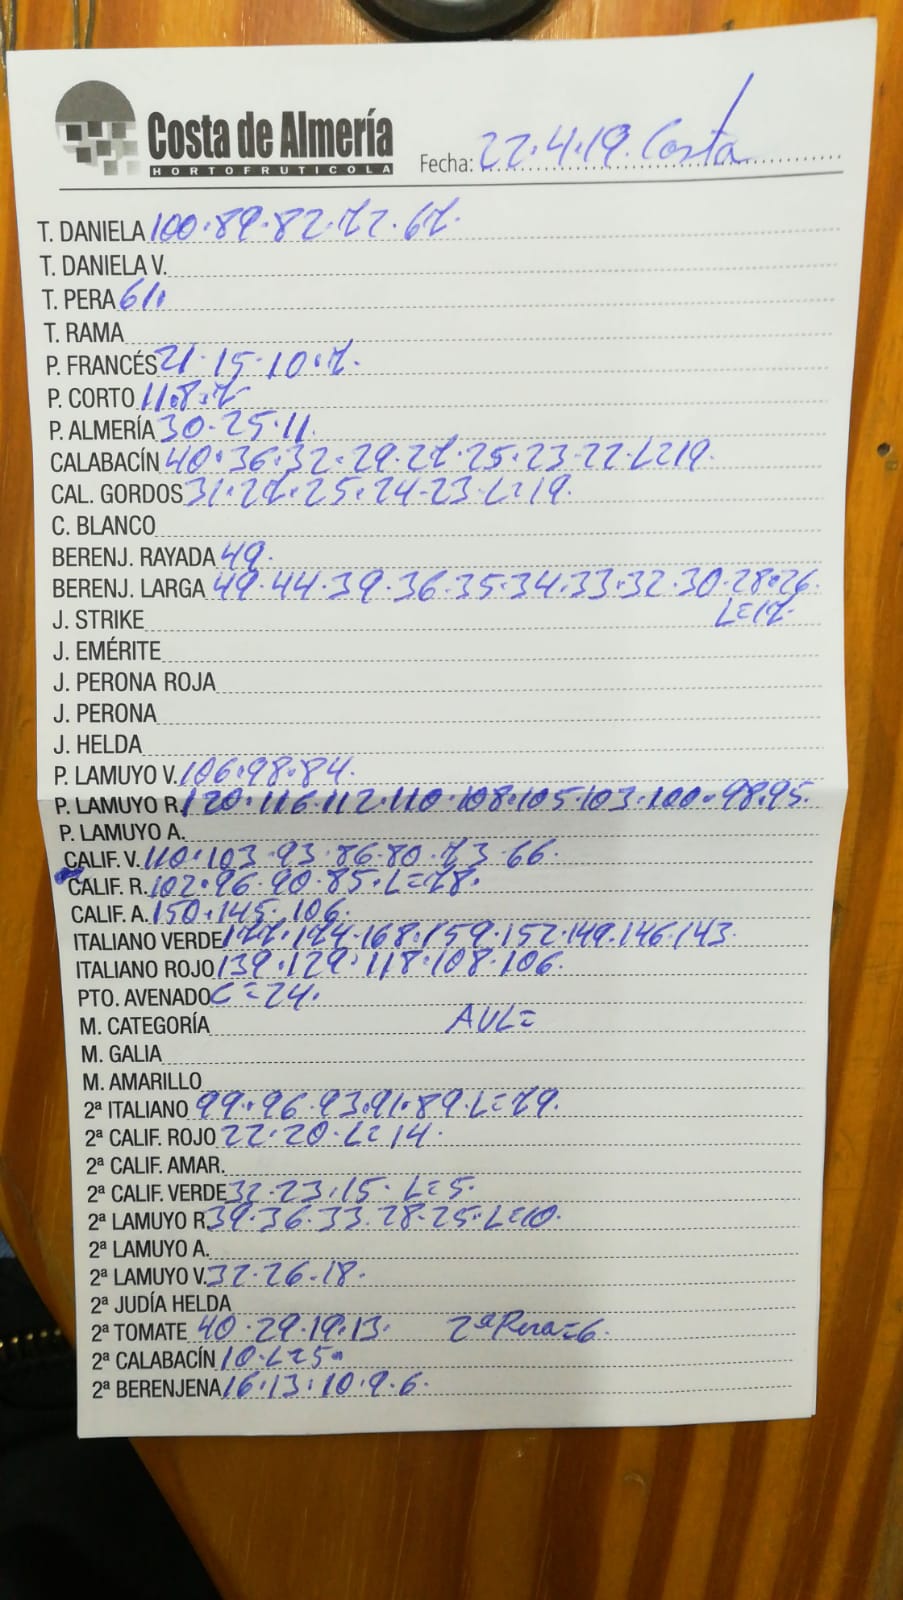 Costa de Almería
HORTOFRUTICOLA
Fecha: 22.4.19. Costa
T. DANIELA 100.89.82.72.67.
T. DANIELA V.
T. PERA 61.
T. RAMA
P. FRANCÉS 21.15.10.7.
P. CORTO 11.8.7
P. ALMERÍA 30.25.11.
CALABACÍN 40.36.32.29.27.25.23.22.L=19.
CAL. GORDOS 31.27.25.24.23.L=19.
C. BLANCO
BERENJ. RAYADA 49.
BERENJ. LARGA 49.44.39.36.35.34.33.32.30.28.26.
L=17.
J. STRIKE
J. EMÉRITE
J. PERONA ROJA
J. PERONA
J. HELDA
P. LAMUYO V. 106.98.84.
P. LAMUYO R. 120.116.112.110.108.105.103.100.98.95.
P. LAMUYO A.
CALIF. V. 110.103.93.86.80.73.66.
CALIF. R. 102.96.90.85.L=78.
CALIF. A. 150.145.106.
ITALIANO VERDE 177.174.168.159.152.149.146.143.
ITALIANO ROJO 139.129.118.108.106.
PTO. AVENADO C=24.
M. CATEGORÍA AUL=
M. GALIA
M. AMARILLO
2ª ITALIANO 99.96.93.91.89.L=79.
2ª CALIF. ROJO 22.20.L=14.
2ª CALIF. AMAR.
2ª CALIF. VERDE 32.23.15.L=5.
2ª LAMUYO R. 39.36.33.28.25.L=10.
2ª LAMUYO A.
2ª LAMUYO V. 32.26.18.
2ª JUDÍA HELDA
2ª TOMATE 40.29.19.13. 2ª Pera=6.
2ª CALABACÍN 10.L=5.
2ª BERENJENA 16.13.10.9.6.